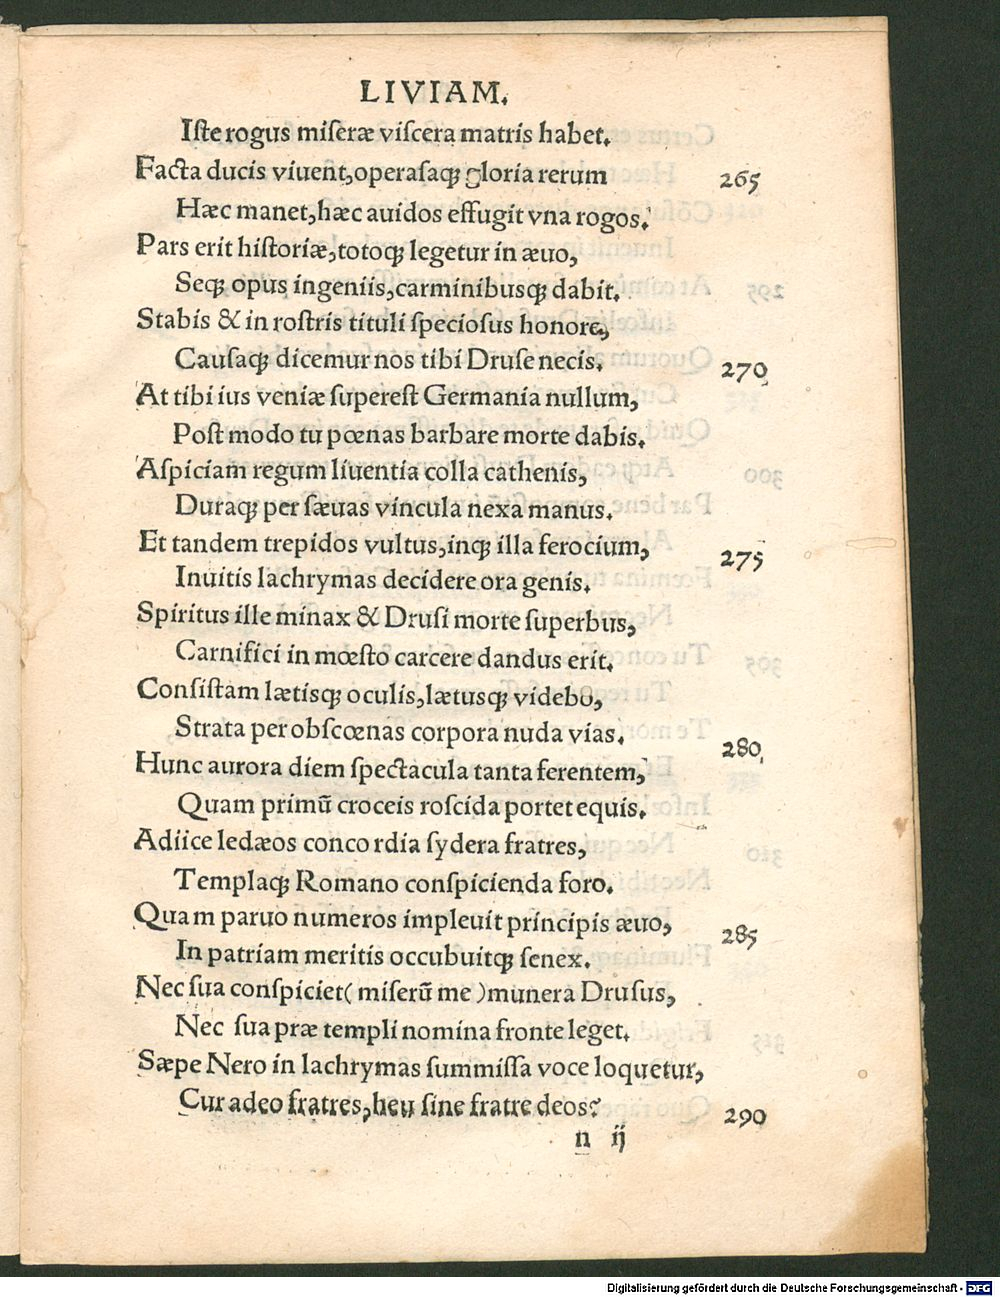 LIVIAM.
Iste rogus miseræ viscera matris habet.
Facta ducis viuent,operasaqꝫ gloria rerum
265
Hæc manet,hæc auidos effugit vna rogos.
Pars erit historiæ,totoqꝫ legetur in æuo,
Seqꝫ opus ingeniis,carminibusqꝫ dabit.
Stabis & in rostris tituli speciosus honore,
Causaqꝫ dicemur nos tibi Druse necis.
270
At tibi ius veniæ superest Germania nullum,
Post modo tu pœnas barbare morte dabis.
Aspiciam regum liuentia colla cathenis,
Duraqꝫ per sæuas vincula nexa manus.
Et tandem trepidos vultus,inqꝫ illa ferocium,
275
Inuitis lachrymas decidere ora genis.
Spiritus ille minax & Drusi morte superbus,
Carnifici in mœsto carcere dandus erit.
Consistam lætisqꝫ oculis,lætusqꝫ videbo,
Strata per obscœnas corpora nuda vias.
280
Hunc aurora diem spectacula tanta ferentem,
Quam primū croceis roscida portet equis.
Adiice ledæos concordia sydera fratres,
Templaqꝫ Romano conspicienda foro.
Quam paruo numeros impleuit principis æuo,
285
In patriam meritis occubuitqꝫ senex.
Nec sua conspiciet( miserū me )munera Drusus,
Nec sua præ templi nomina fronte leget.
Sæpe Nero in lachrymas summissa voce loquetur,
Cur adeo fratres,heu sine fratre deos?
290
n ij
Digitalisierung gefördert durch die Deutsche Forschungsgemeinschaft - DFG